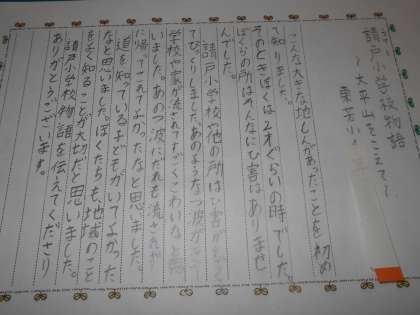 請戸小学校物語
大平山をこえて
こんな大きな地しんがあったことを初め
て知りました。
そのときぼくは2才ぐらいの時でした。
ぼくらの所はそんなにひ害はありませ
んでした。
請戸小学校や他の所はひ害が
てびっくりしました。あのような つ波が
学校や家が流されてすごくこわいなと思
いました。あのつ波にだれも流されず
に帰てこれてよかったなと思いました。
道を知ている子どもがいてよかった
なと思いました。ぼくたちも、地域のこと
をよく知ることが大切だと思いました。
請戸小学校物語を伝えてくださり
ありがとうございます。